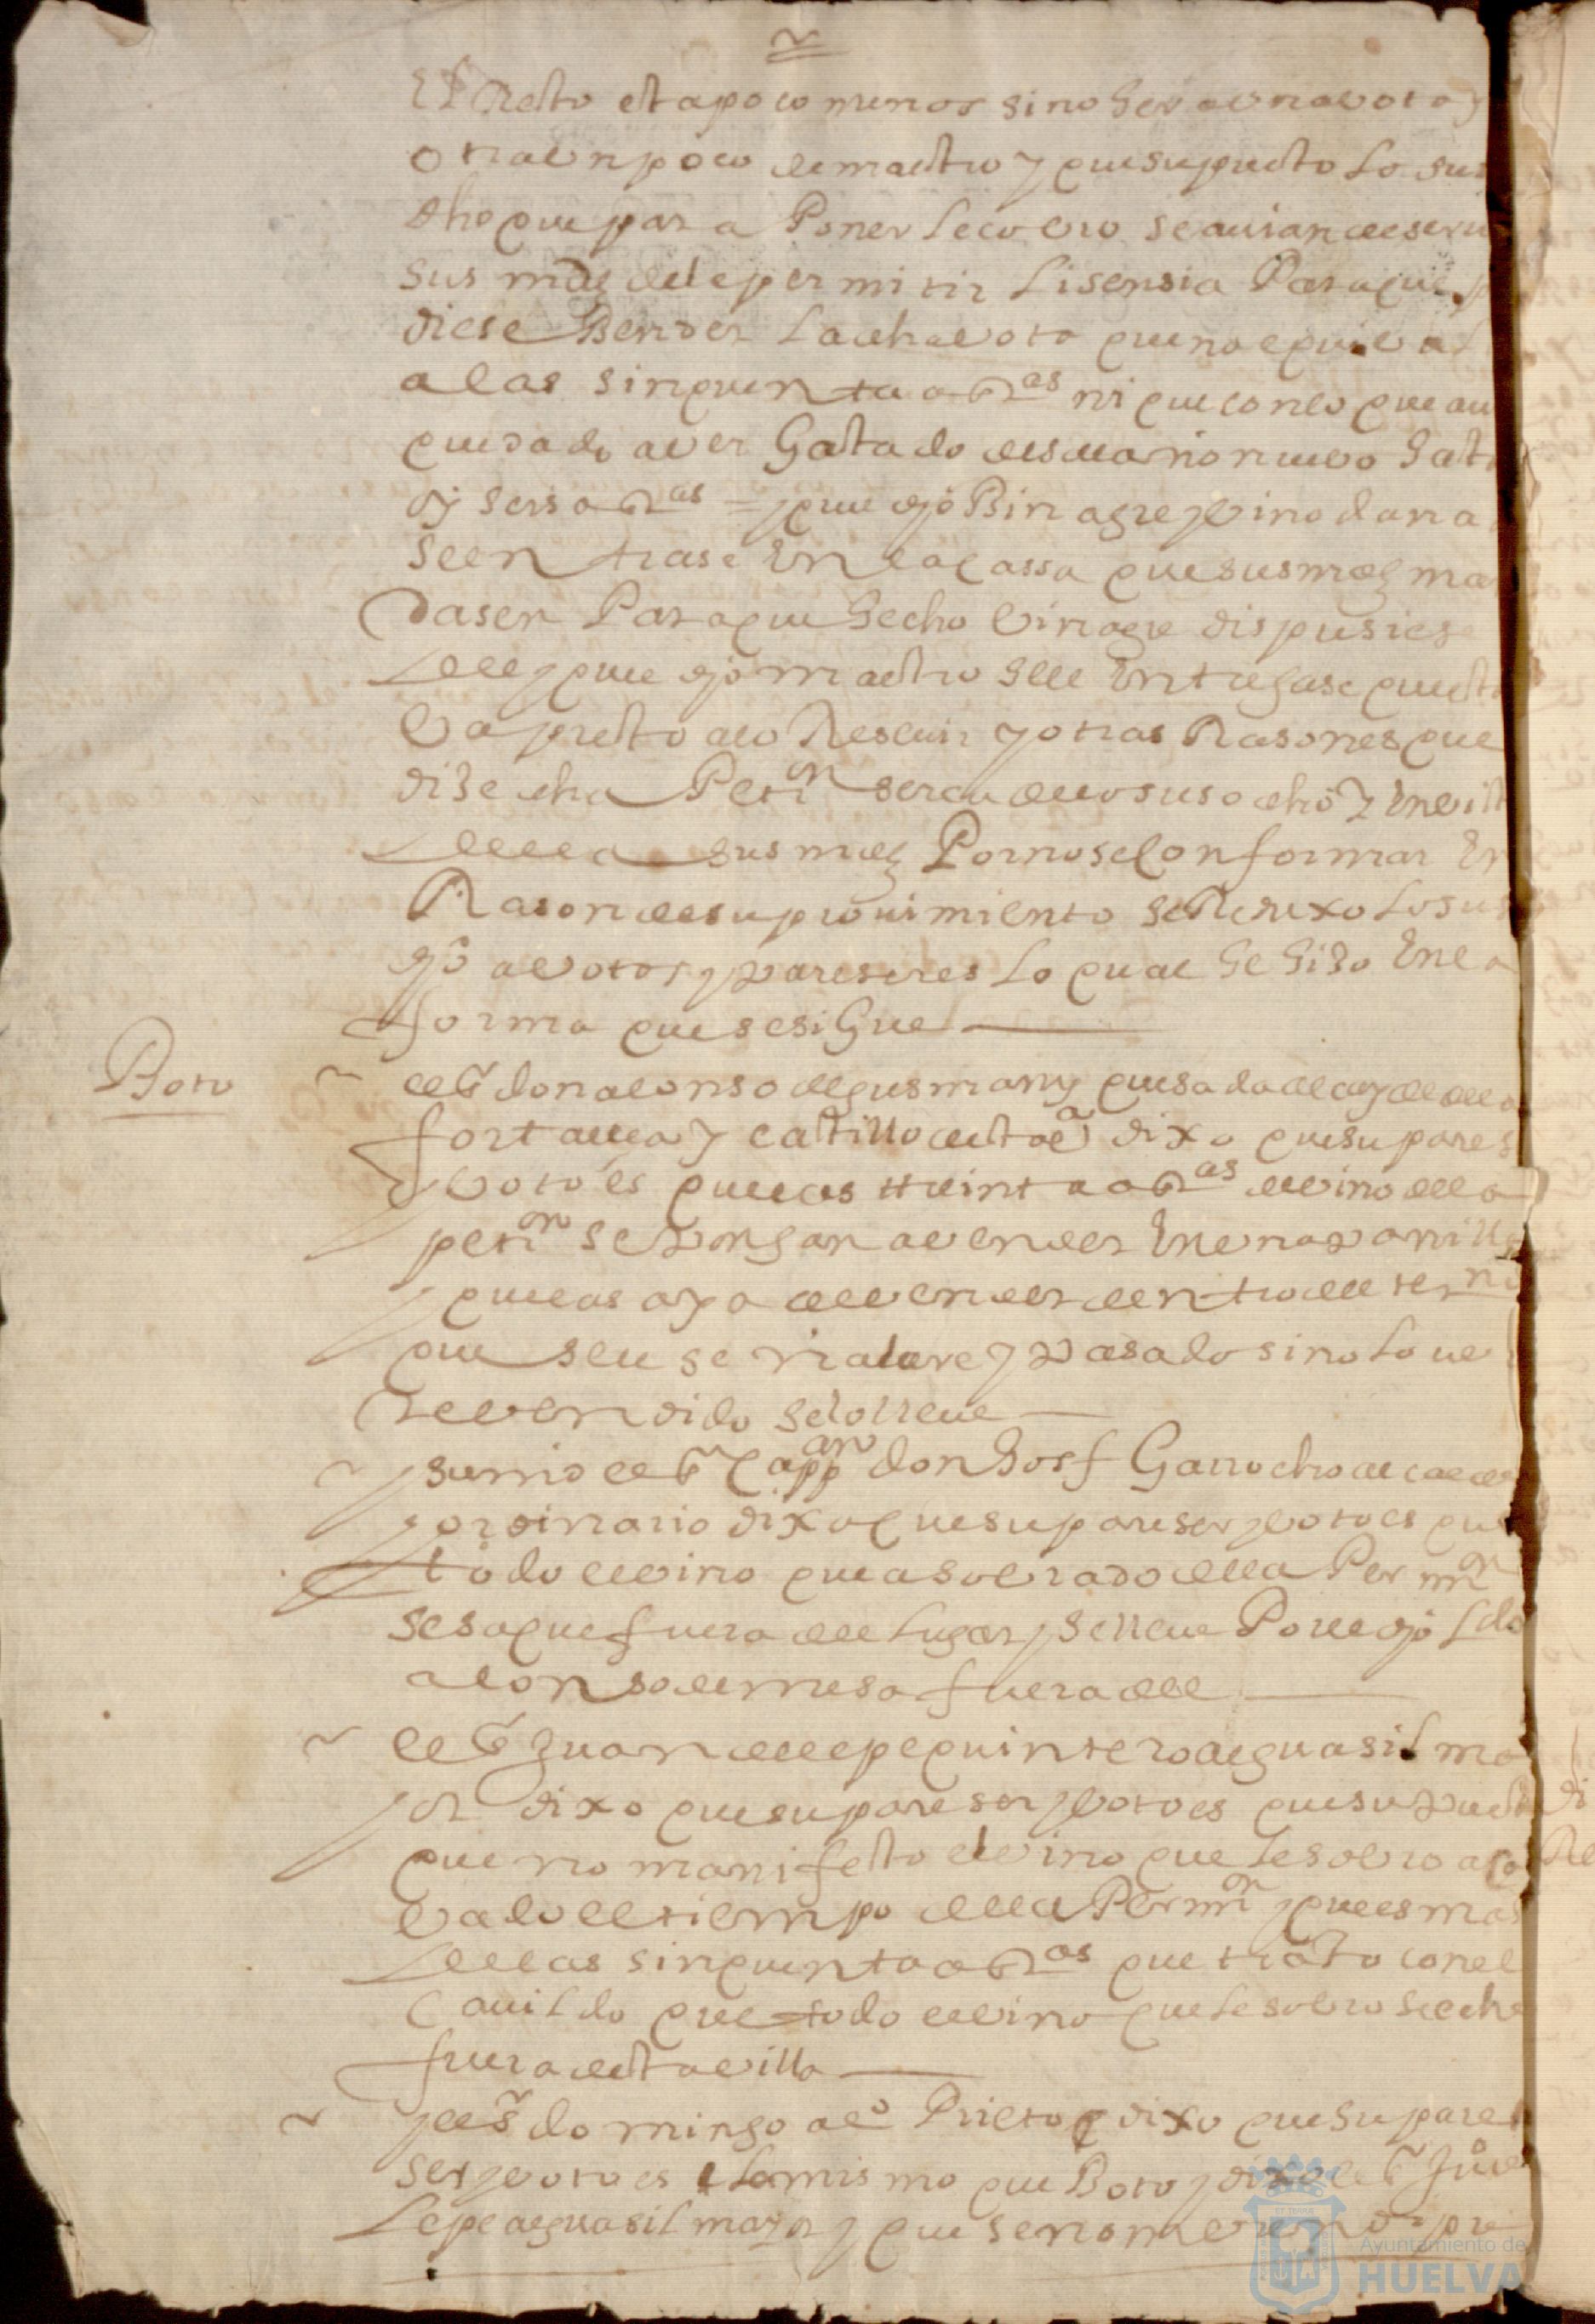 El Resto esta poco menos sino ser una vota y
otra un poco de mastro y que supuesto lo sus
dho que para Poner le cobro se auian de seruir
sus mds de le permitir Lisensia Para que p
diese Bender La dha vota que no equival
a las sinquenta a rras ni que con lo que au
quedado aver Gastado desde año nuevo hasta
oy seis a rras = y que dho Binagre y vino dana
se entrase En la cassa que sus mds ma
dasen Para que hecho Vinagre dispusiese
del y que dho mastro se le Entregase questa
va presto a lo Reseuir y otras Rasones que
dise dha Petion serca de lo suso dho y En vist
de ella sus mds Por no se Conformar En
Rason de su prouimiento se Reduxo lo sus
dho a votos y pareseres Lo qual se hiso En la
forma que se sigue
Boto
el sr don alonso de gusman y quesada alcayde de la
fortalesa y castillo desta va dixo que su pares
y voto es que las treinta a rras de vino de la
petion se Pongan a vender En una Panilla
y que las aya de vender dentro del termo
que se le señalare y Pasado sino lo ue
re vendido se lo lleue
y su md el sr Cappan don Josf Garrocho alcalde
y ordinario dixo que su pareser y voto es que
todo el vino que a sobrado de la Permon
se saque fuera del Lugar y se lleue Por el dho Ldo
alonso de mesa fuera del
el sr Juan de lepe quintero alguasil ma
yor dixo que su pareser y voto es que supuesto
que no manifesto el vino que le sobro aca
vado el tiempo de la Permon y que es mas
de las sinquenta a rras que trato con el
Cauildo que todo el vino que le sobro se eche
fuera desta villa
y el sr domingo alo Prieto dixo que su pare
ser y voto es lo mismo que Boto y dixo el sr Juo de
Lepe alguasil mayor y que se nombre
Ayuntamiento de
HUELVA